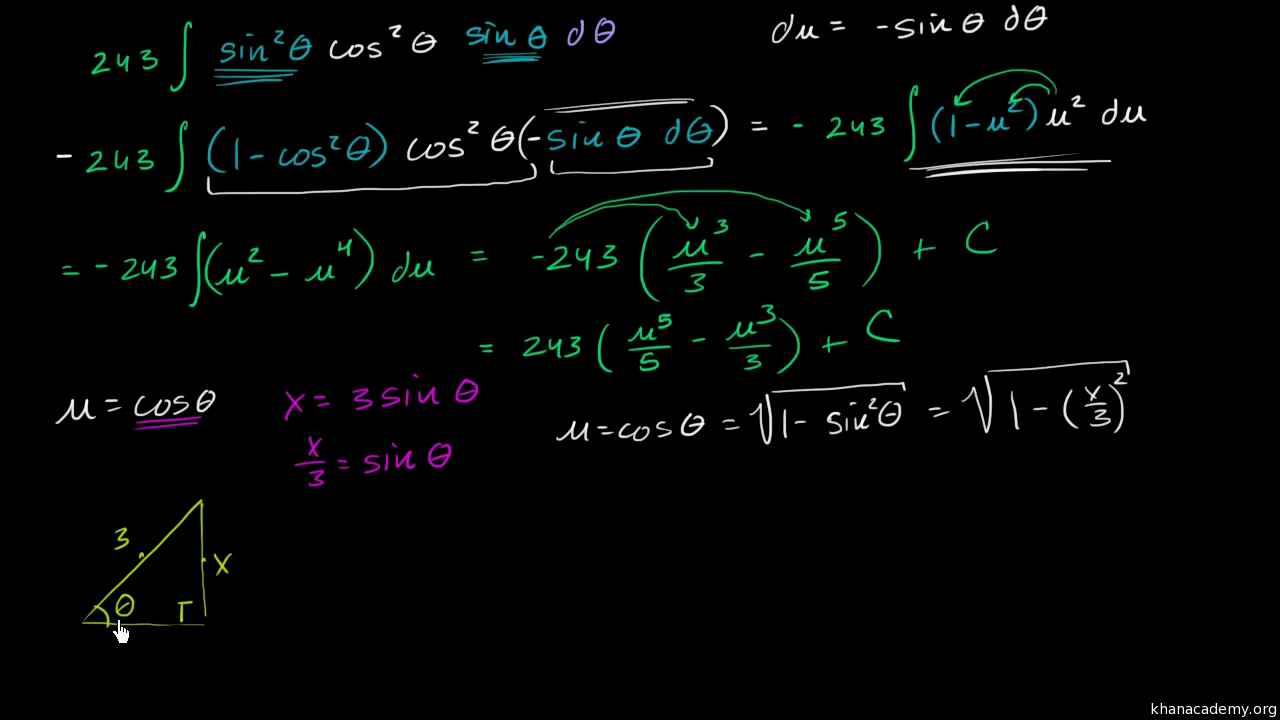 243 ∫ sin²θ cos²θ sin θ dθ
du = -sin θ dθ
- 243 ∫ (1 - cos²θ) cos²θ (-sin θ dθ) = - 243 ∫ (1 - u²) u² du
= - 243 ∫ (u² - u⁴) du = -243 (u³/3 - u⁵/5) + C
= 243 (u⁵/5 - u³/3) + C
u = cosθ
x = 3 sin θ
x/3 = sin θ
u = cos θ = √(1 - sin²θ) = √(1 - (x/3)²)
3
x
θ
khanacademy.org